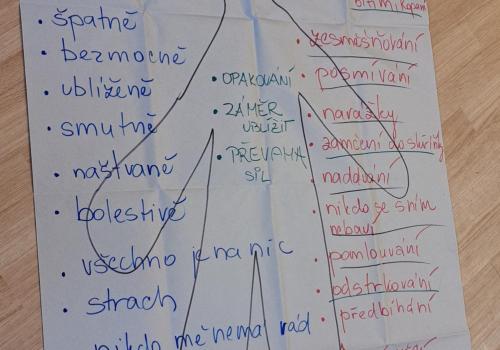 • špatně
• bezmocně
• ublíženě
• smutně
• naštvaně
• bolestivě
• všechno je na nic
• strach
nikdo mě nemá rád
• OPAKOVÁNÍ
• ZÁMĚR
UBLÍŽIT
• PŘEVAHA
SIL
• zesměšňování
• posmívání
• narážky
• zamčení do skříňky
• nadávání
• nikdo se s ním
nebaví
• pomlouvání
• odstrkování
• předbíhání